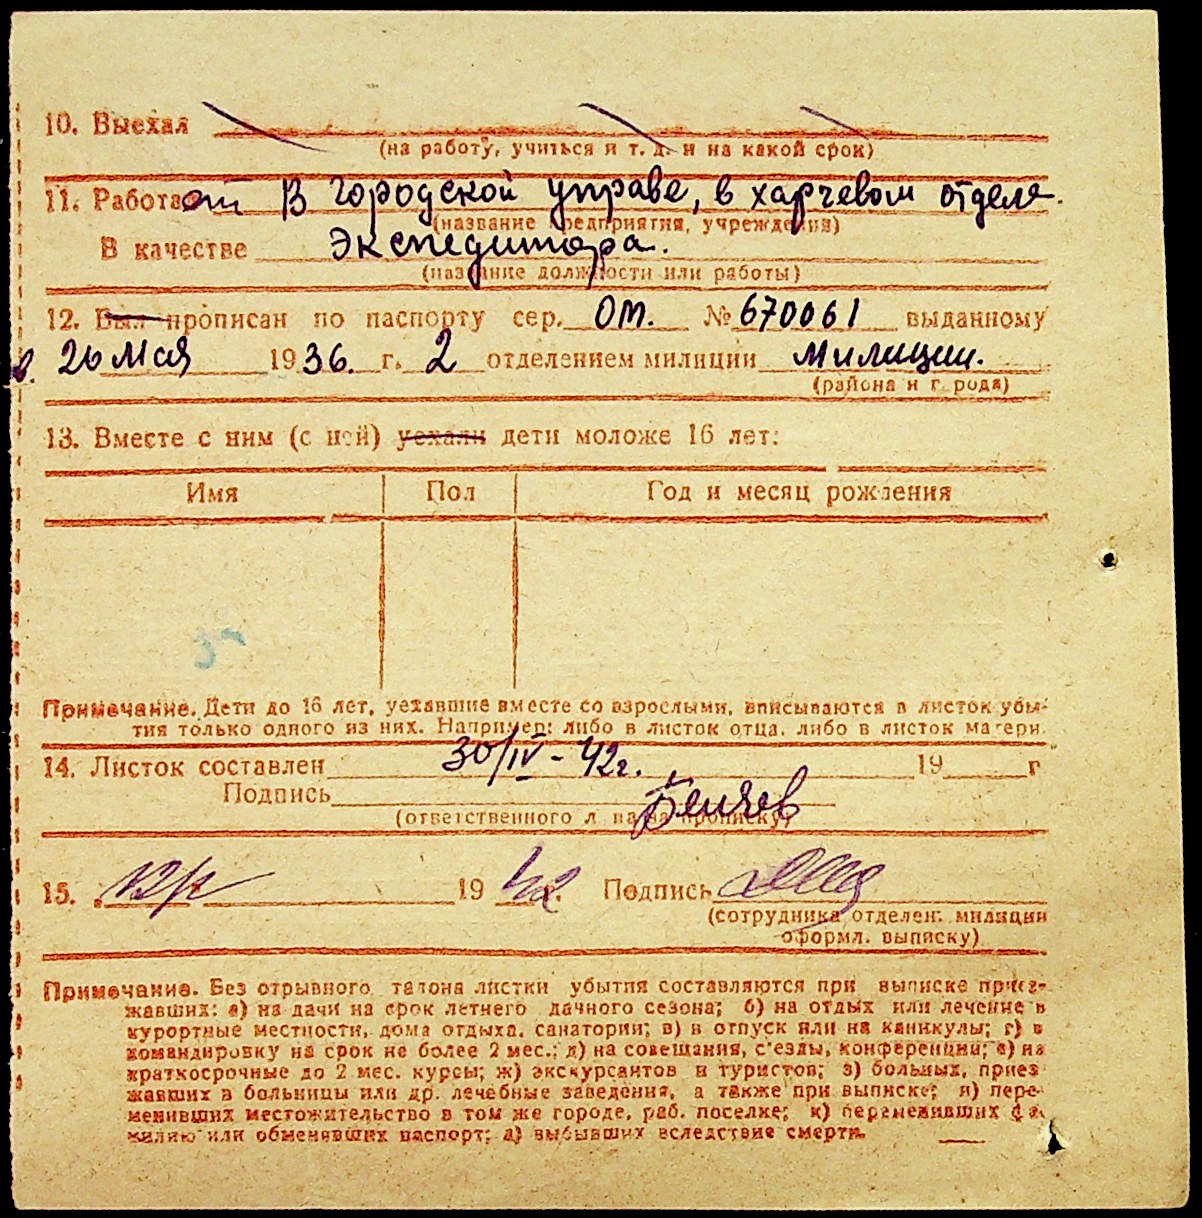 10. Выехал
(на работу, учиться и т. д. и на какой срок)
11. Работает В Городской управе, в харчевом отделе.
(название предприятия, учреждения)
В качестве Экспедитора.
(название должности или работы)
12. Был прописан по паспорту сер. ОМ. № 670061 выданному
26 Мая 1936. г. 2 отделением милиции Милиции.
(района и города)
13. Вместе с ним (с ней) уехали дети моложе 16 лет:
Имя Пол Год и месяц рождения
Примечание. Дети до 16 лет, уехавшие вместе со взрослыми, вписываются в листок убы-
тия только одного из них. Например: либо в листок отца, либо в листок матери.
14. Листок составлен 30/IV - 42г. 19 г
Подпись
(ответственного лица за прописку)
15. 19 42. Подпись
(сотрудника отделен. милиции
оформл. выписку)
Примечание. Без отрывного талона листки убытия составляются при выписке приез-
жавших: а) на дачи на срок летнего дачного сезона; б) на отдых или лечение в
курортные местности, дома отдыха, санатории; в) в отпуск или на каникулы; г) в
командировку на срок не более 2 мес.; д) на совещания, с'езды, конференции; е) на
краткосрочные до 2 мес. курсы; ж) экскурсантов и туристов; з) больных, приез
жавших в больницы или др. лечебные заведения, а также при выписке; и) пере-
менивших местожительство в том же городе, раб. поселке; к) переменивших фа-
милию или обменявших паспорт; л) выбывших вследствие смерти.